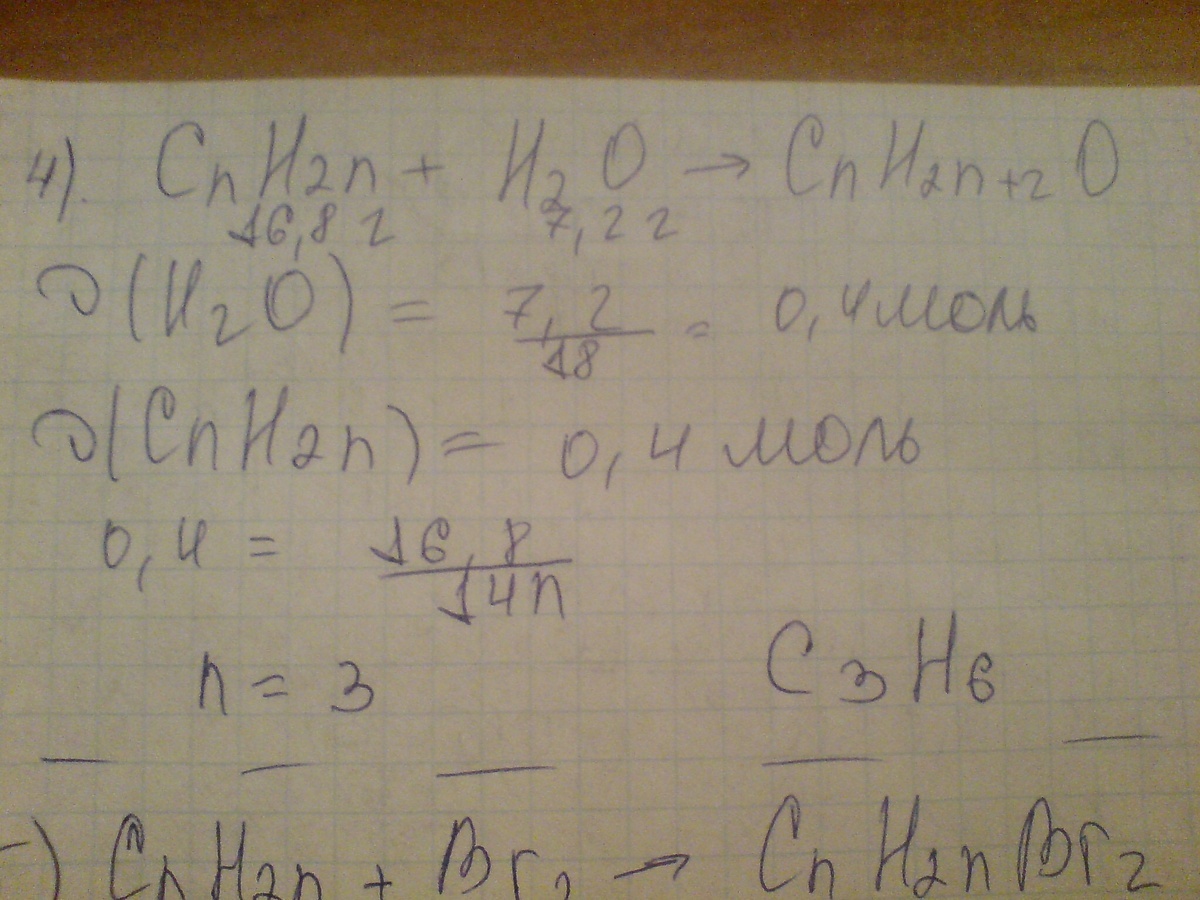 4). CnH2n + H2O → CnH2n+2O
16,8 г 7,2 г
ν(H2O) = 7,2/18 = 0,4 моль
ν(CnH2n) = 0,4 моль
0,4 = 16,8/14n
n = 3 C3H6
) CnH2n + Br2 → CnH2nBr2